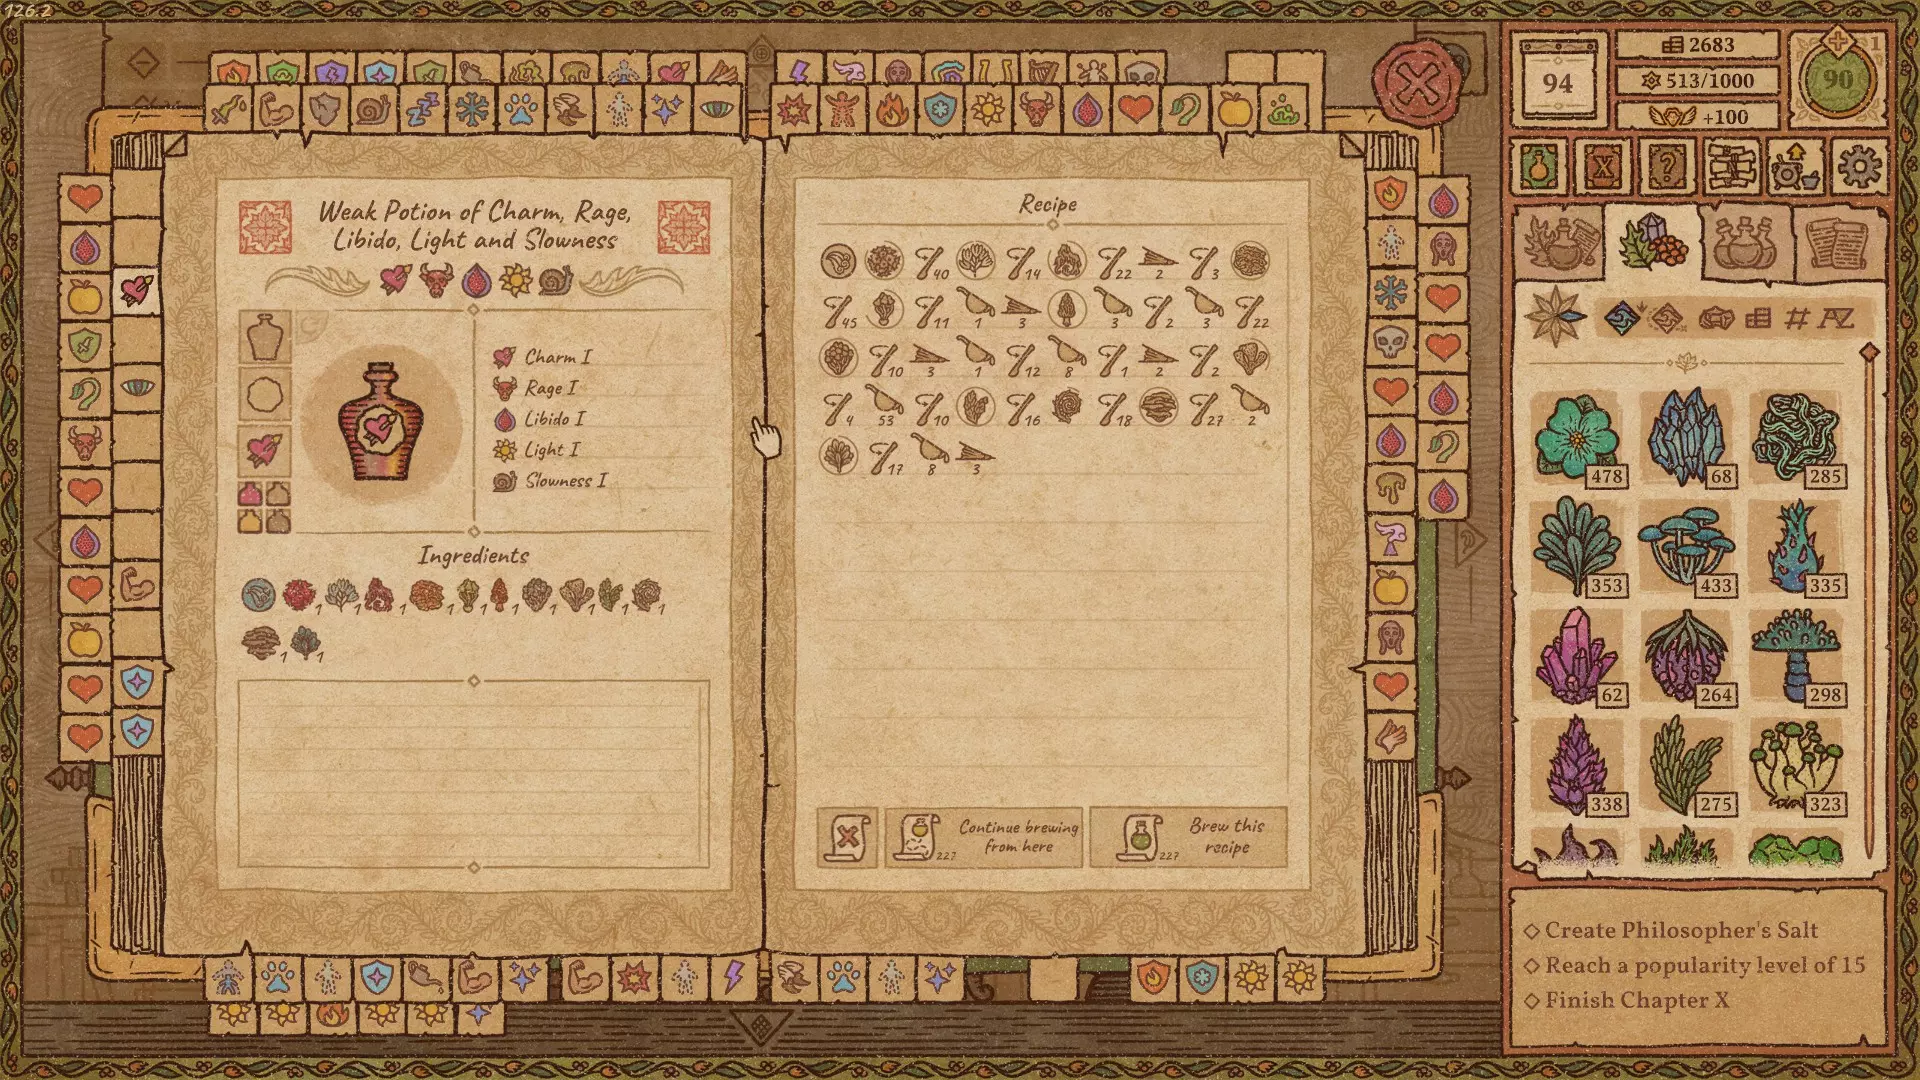 126.2
Weak Potion of Charm, Rage,
Libido, Light and Slowness
Charm I
Rage I
Libido I
Light I
Slowness I
Ingredients
1 1 1 1 1 1 1 1 1 1
1 1
Recipe
40 14 22 2 3
45 11 1 3 3 2 3 22
10 3 1 12 8 1 2 2
4 53 10 16 18 27 2
17 8 3
227
Continue brewing
from here
227
Brew this
recipe
94
2683
513/1000
+100
90
1
X
?
# AZ
478 68 285
353 433 335
62 264 298
338 275 323
Create Philosopher's Salt
Reach a popularity level of 15
Finish Chapter X